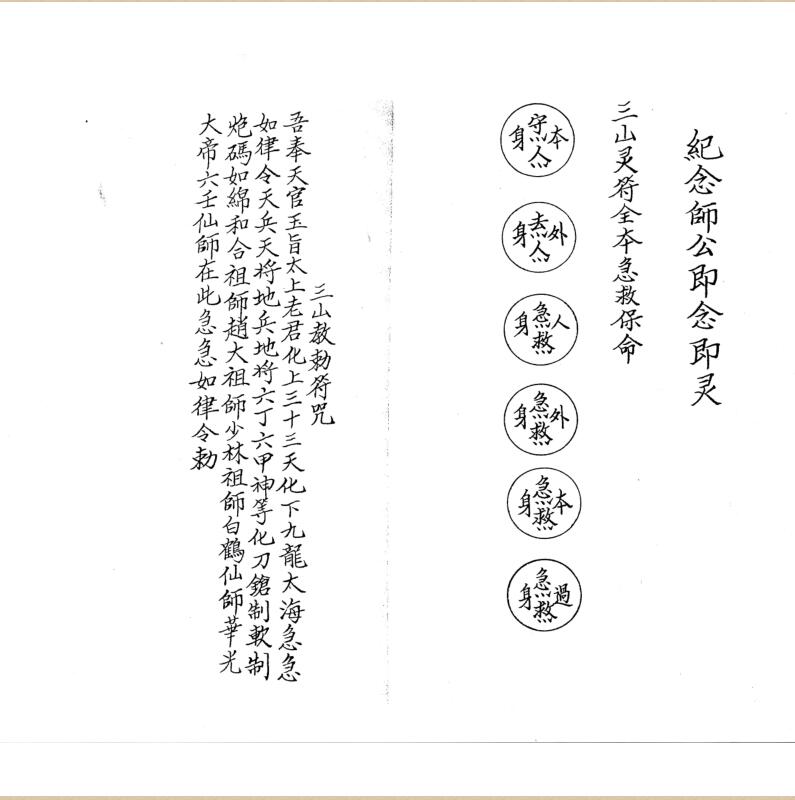 紀念師公即念即灵
三山灵符全夲急救保命
本守人身
外去人身
人急救身
外急救身
本急救身
過急救身
三山教勅符咒
吾奉天官玉旨太上老君化上三十三天化下九龍太海急急
如律令天兵天将地兵地将六丁六甲神等化刀鎗制軟制
炮碼如綿和合祖師趙大祖師少林祖師白鶴仙師華光
大帝六壬仙師在此急急如律令勅